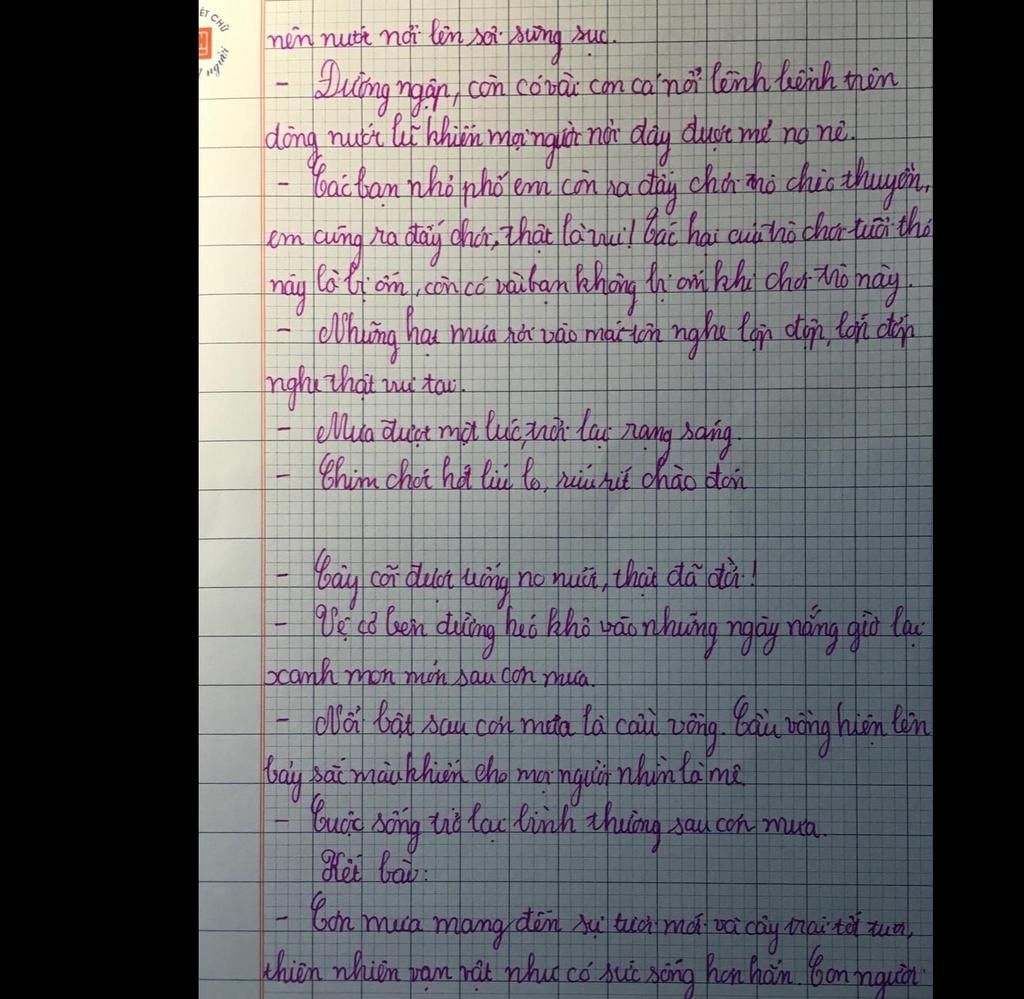 ẾT CHỮ
người
nên nước nổi lên sôi sùng sục.
- Đường ngập, còn có vài con cá nổi lềnh bềnh trên
dòng nước lũ khiến mọi người nơi đây được mẻ no nê.
- Các bạn nhỏ phố em còn ra đấy chơi trò chèo thuyền,
em cũng ra đấy chơi, thật là vui! Các hại của trò chơi tuổi thơ
này là bị ốm, còn có vài bạn không bị ốm khi chơi trò này.
- Những hạt mưa rơi vào mái tôn nghe lộp độp, lộp độp
nghe thật vui tai.
- Mưa được một lúc, trời lại rạng sáng.
- Chim chóc hót líu lo, ríu rít chào đón
- Cây cối được uống no nước, thật đã đời!
- Vệ cỏ bên đường héo khô vào những ngày nắng giờ lại
xanh mơn mởn sau cơn mưa.
- Nổi bật sau cơn mưa là cầu vồng. Cầu vồng hiện lên
bảy sắc màu khiến cho mọi người nhìn là mê
- Cuộc sống trở lại bình thường sau cơn mưa.
Kết bài:
- Cơn mưa mang đến sự tươi mới và cây trái tốt tươi,
thiên nhiên vạn vật như có sức sống hơn hẳn. Con người